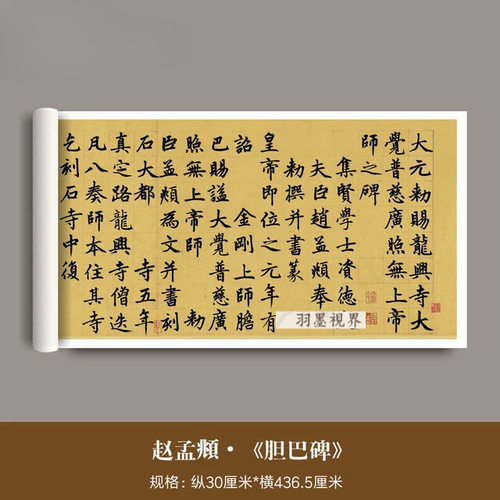 大元勅賜龍興寺大
覺普慈廣照無上帝
師之碑
集賢學士資德
夫臣趙孟頫奉
勅撰并書篆
皇帝即位之元年有
詔 金剛上師膽
巴賜謚大覺普慈廣
照無上帝師 勅
臣孟頫為文并書刻
石大都 寺五年
真定路龍興寺僧迭
凡八奏師本住其寺
乞刻石寺中復
羽墨視界
赵孟頫·《胆巴碑》
规格：纵30厘米*横436.5厘米